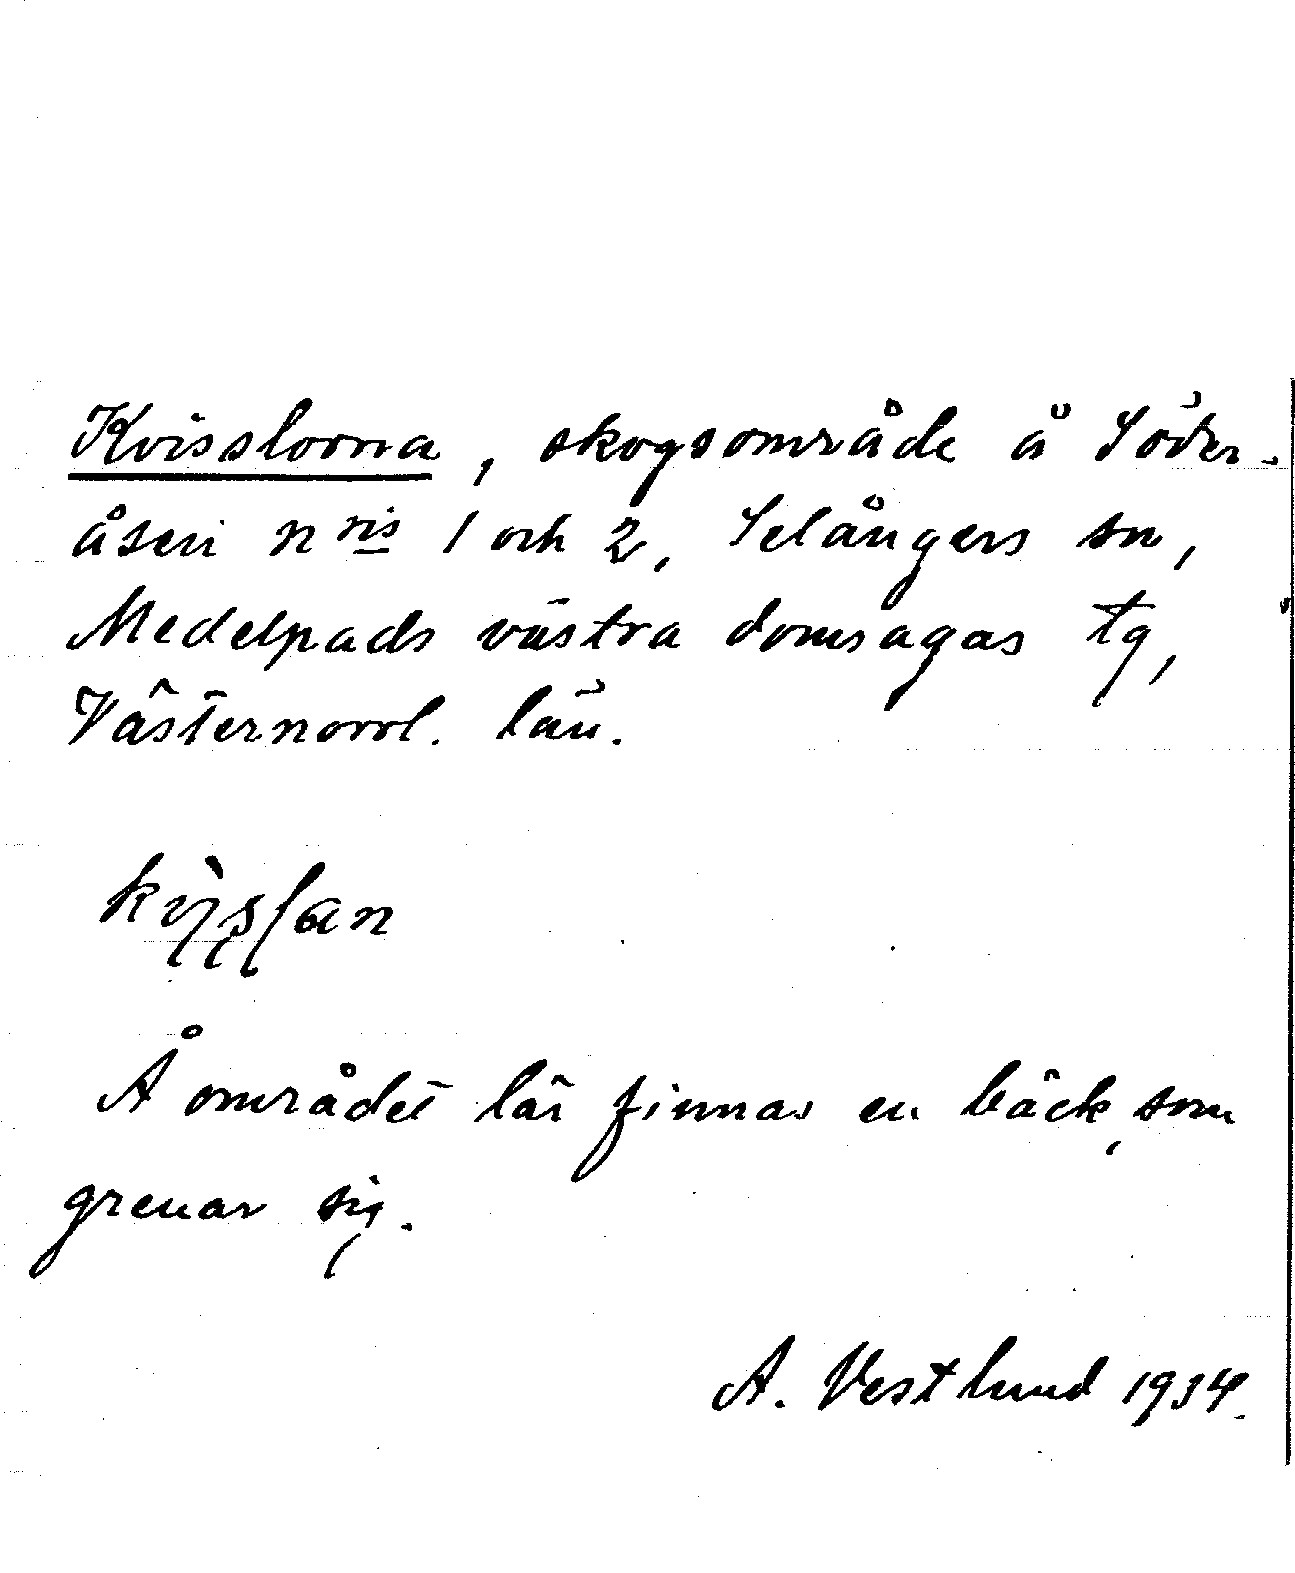 Kvisslorna, skogsområde å Söder-
åsen nris 1 och 2, Selångers sn,
Medelpads västra domsagas tg,
Västernorrl. län.
Å området lär finnas en bäck, som
grenar sig.
A. Vestlund 1934.